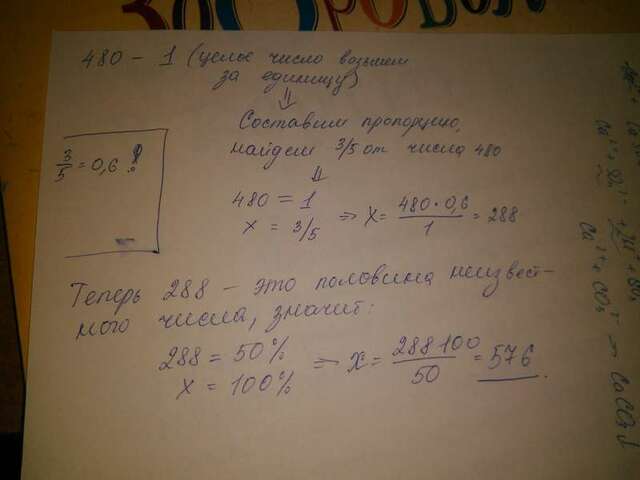 ЗООРОБОТ
480 - 1 (целое число возьмем
за единицу)
⇓
Составим пропорцию,
найдем 3/5 от числа 480
⇓
3/5 = 0,6 !
480 = 1
x = 3/5 ⇒ x = 480·0,6/1 = 288
Теперь 288 - это половина неизвест-
ного числа, значит:
288 = 50%
x = 100% ⇒ x = 288·100/50 = 576
Ca²⁺ + CO₃²⁻ → CaCO₃↓